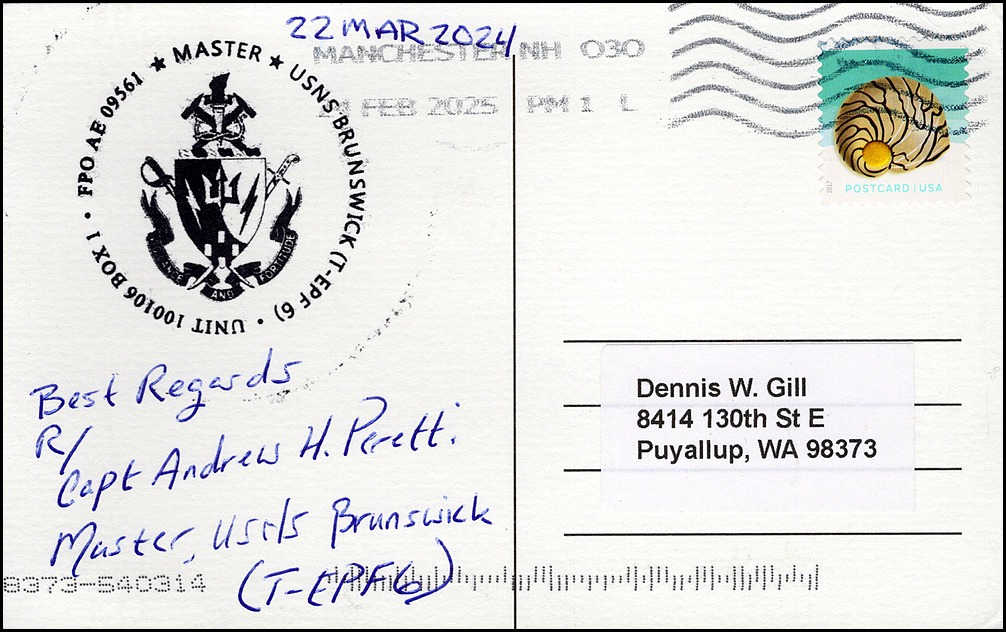 22 MAR 2024
MANCHESTER NH 030
FEB 2025 PM 1 L
★ MASTER ★ USNS BRUNSWICK (T-EPF 6) • UNIT 100106 BOX 1 • FPO AE 09561
AND FORTITUDE
2017
POSTCARD | USA
Best Regards
R/
Capt Andrew H. Peretti
Master, USNS Brunswick
(T-EPF6)
Dennis W. Gill
8414 130th St E
Puyallup, WA 98373
8373-540314